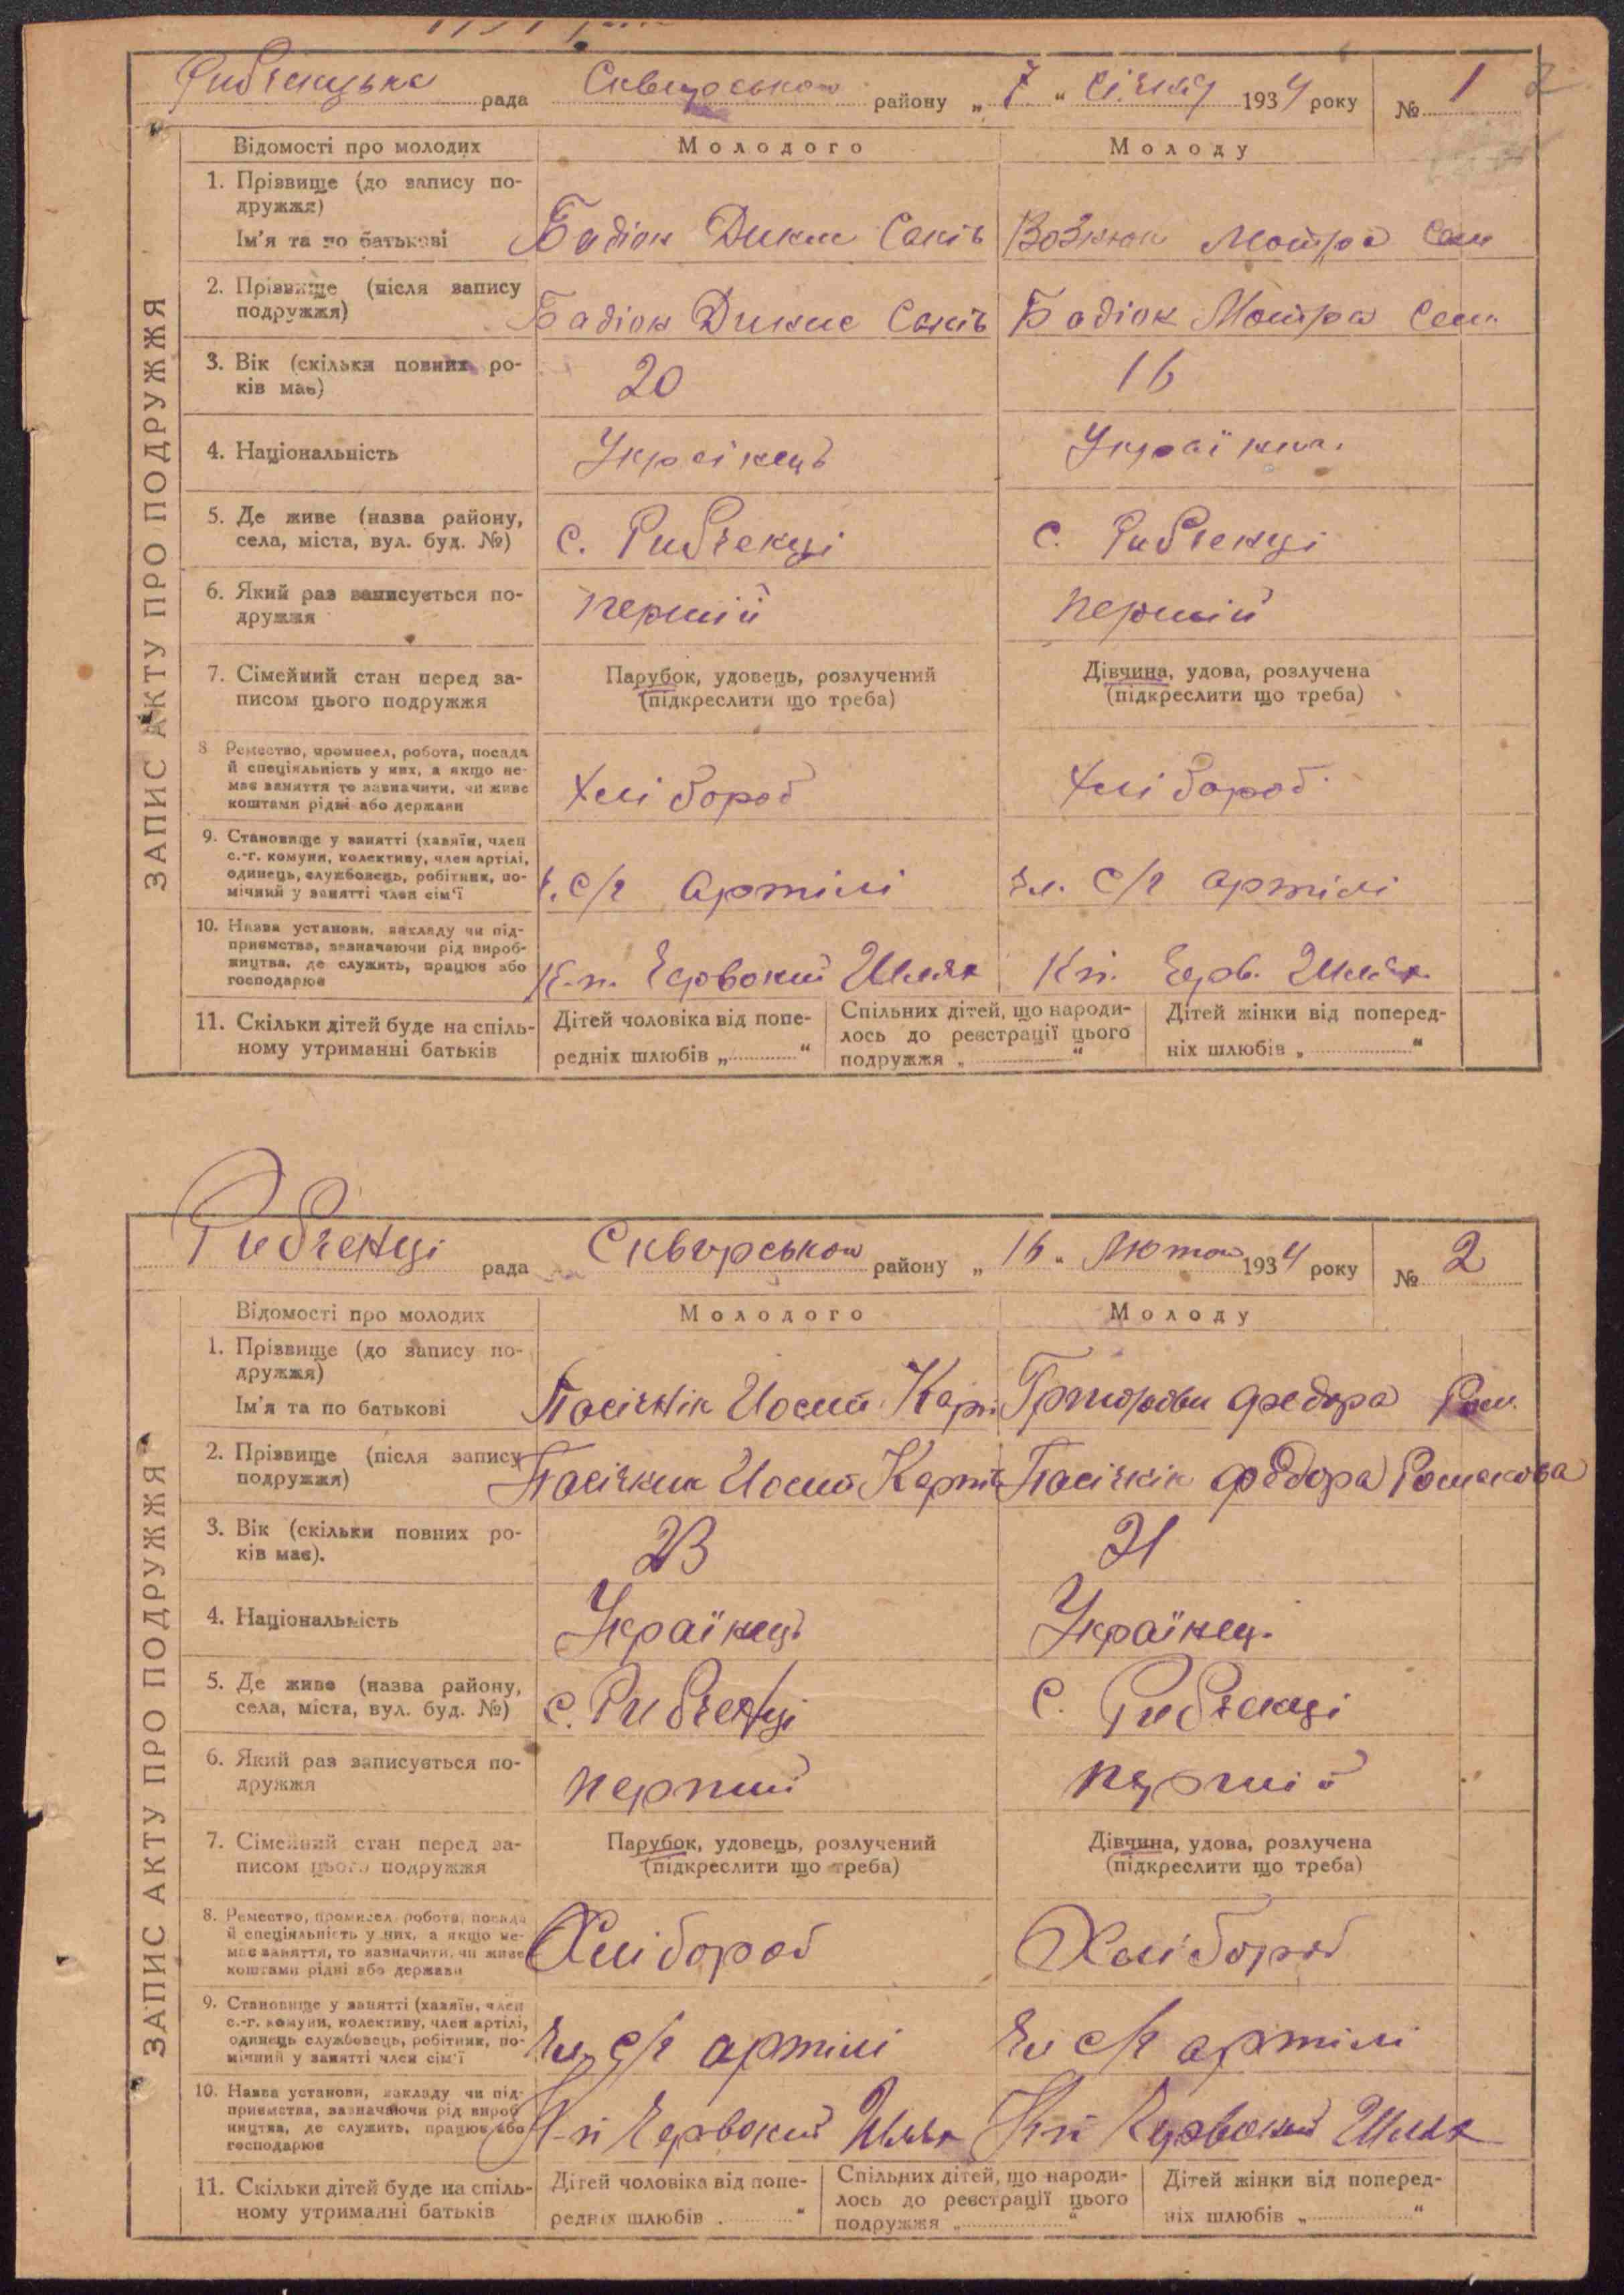 рада Сквирського району „ 7 “ січня 1934 року № 1 2
Відомості про молодих Молодого Молоду
1. Прізвище (до запису по-
дружжя)
Ім'я та по батькові Бадіон Вознюк Мотря Сем
2. Прізвище (після запису
подружжя) Бадіон Бадіок Мотря Сем.
3. Вік (скільки повних ро-
ків має) 20 16
4. Національність Українець Українка.
5. Де живе (назва району,
села, міста, вул. буд. №) с. Рибченці с. Рибченці
6. Який раз записується по-
дружжя перший перший
7. Сімейний стан перед за-
писом цього подружжя
Парубок, удовець, розлучений
(підкреслити що треба)
Дівчина, удова, розлучена
(підкреслити що треба)
8 Ремество, промисел, робота, посада
й спеціяльність у них, а якщо не-
має заняття то зазначити, чи живе
коштами рідні або держави
Хлібороб Хлібороб
9. Становище у занятті (хазяїн, член
с.-г. комуни, колективу, член артілі,
одинець, службовець, робітник, по-
мічний у занятті член сім'ї
ч. с/г артілі чл. с/г артілі
10. Назва установи, закладу чи під-
приємства, зазначаючи рід вироб-
ництва, де служить, працює або
господарює
К.п. Червоний Шлях Кп. Черв. Шлях
11. Скільки дітей буде на спіль-
ному утриманні батьків
Дітей чоловіка від попе-
редніх шлюбів „ “
Спільних дітей, що народи-
лось до реєстрації цього
подружжя „ “
Дітей жінки від поперед-
ніх шлюбів „ “
ЗАПИС АКТУ ПРО ПОДРУЖЖЯ
Рибченці рада Сквирського району „ 16 “ Лютого 1934 року № 2
Відомості про молодих Молодого Молоду
1. Прізвище (до запису по-
дружжя)
Ім'я та по батькові Пасічнік Йосип Карп. Федора Ром.
2. Прізвище (після запису
подружжя) Пасічник Йосип Карпів Пасічнік Федора Романова
3. Вік (скільки повних ро-
ків має). 23 21
4. Національність Українець Українец.
5. Де живе (назва району,
села, міста, вул. буд. №) с. Рибченці с. Рибченці
6. Який раз записується по-
дружжя перший перший
7. Сімейний стан перед за-
писом цього подружжя
Парубок, удовець, розлучений
(підкреслити що треба)
Дівчина, удова, розлучена
(підкреслити що треба)
8. Ремество, промисел робота, посада
й спеціяльність у них, а якщо не-
має заняття, то зазначити, чи живе
коштами рідні або держави
Хлібороб Хлібороб
9. Становище у занятті (хазяїн, член
с.-г. комуни, колективу, член артілі,
одинець службовець, робітник, по-
мічний у занятті член сім'ї
Чл. с/г артілі Чл с/г артілі
10. Назва установи, закладу чи під-
приємства, зазначаючи рід вироб
ництва, де служить, працює або
господарює
К-п Червоний Шлях Кп Червоний Шлях
11. Скільки дітей буде на спіль-
ному утриманні батьків
Дітей чоловіка від попе-
редніх шлюбів „ “
Спільних дітей, що народи-
лось до реєстрації цього
подружжя „ “
Дітей жінки від поперед-
ніх шлюбів „ “
ЗАПИС АКТУ ПРО ПОДРУЖЖЯ